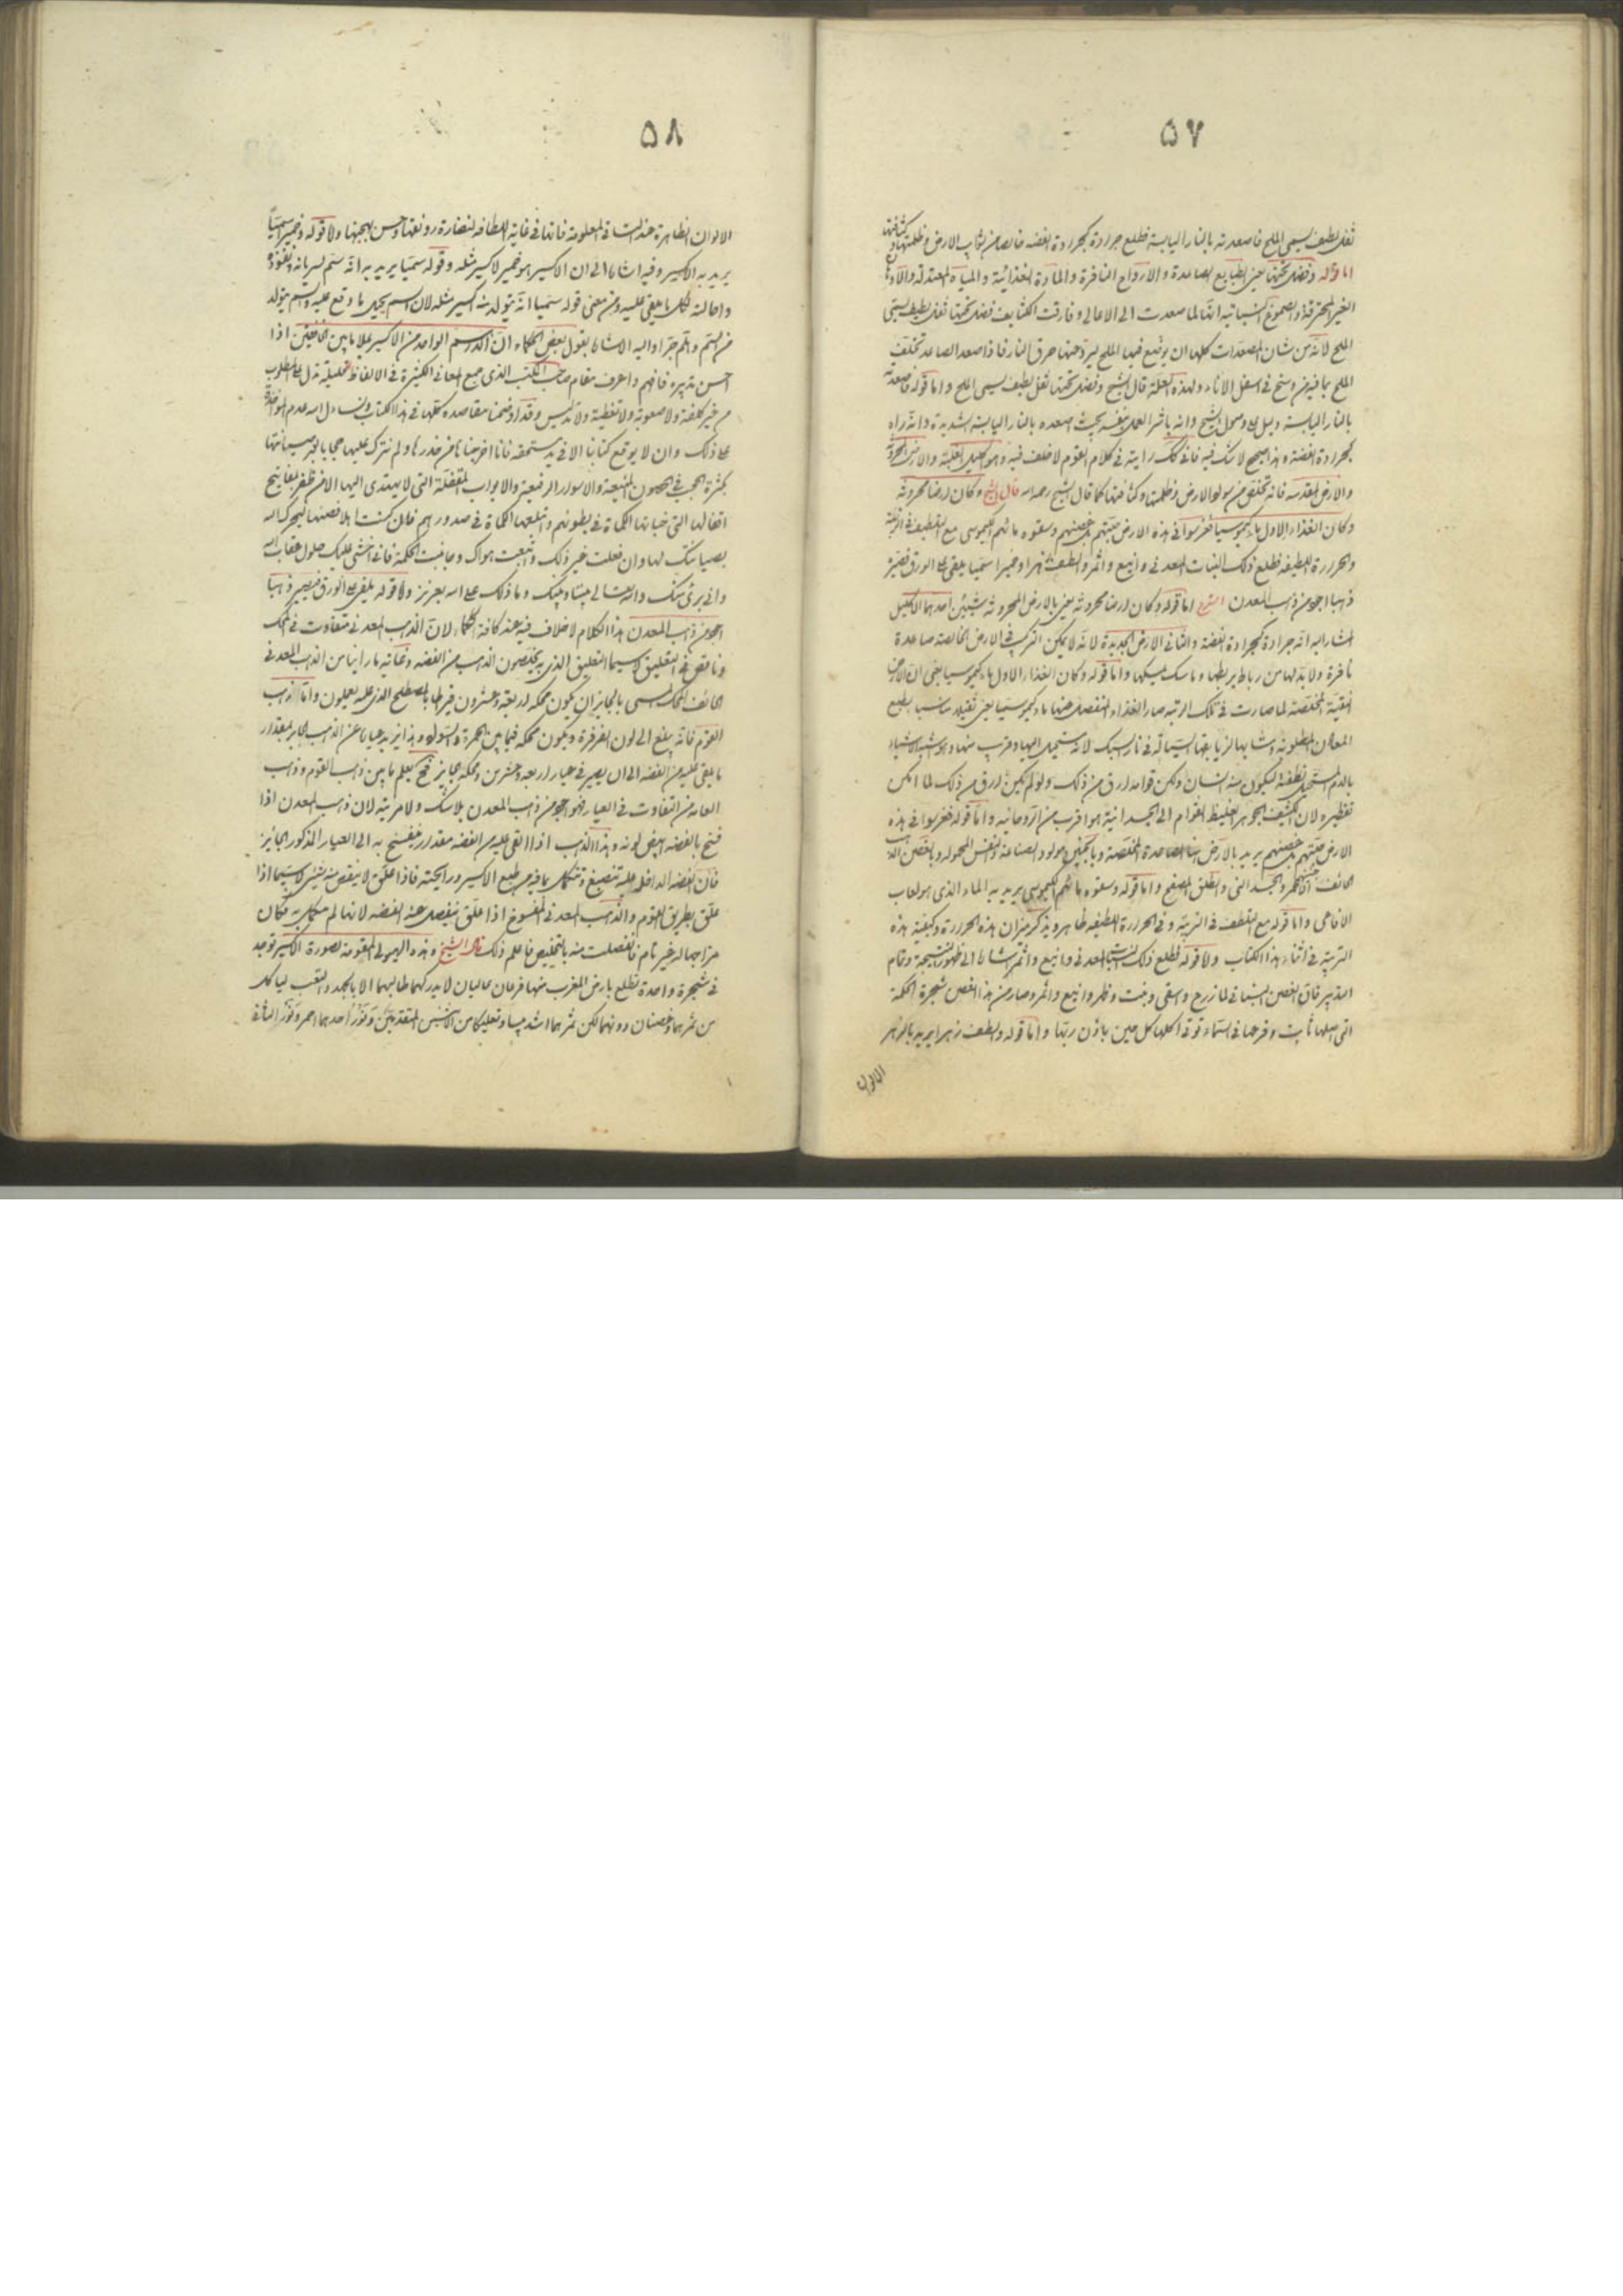 ۵۷
ثفل لطيف يسمى الملح فاصعدته بالنار اليابسة فطلع جرادة كجرادة الفضه خالصا من تراب الارض وظلمتها وكثافتها
اما قوله وفضل تحتها يعنى الطبايع الصاعدة والارواح النافرة والمادة الغذائية والمياه المعتدلة والادهان
الغير المحترقة والصموغ النباتيه انها لما صعدت الى الاعالى وفارقت الكثايف فضل تحتها ثفل لطيف يسمى
الملح لانه من شان المصعدات كلها ان يوضع فيها الملح ليرد عنها حرق النار فاذا صعد الصاعد تخلف
الملح بما فيه من وسخ فى اسفل الاناء ولهذه العلة قال الشيخ وفضل تحتها ثفل لطيف يسمى الملح واما قوله فاصعدته
بالنار اليابسة دليل على وصول الشيخ وانه باشر العمل بنفسه بحيث اصعده بالنار اليابسة الشديدة وانه راه
كجرادة الفضة وهذا صحيح لا شك فيه فانى كذلك رايته فى كلام القوم لا خلف فيه وهو اكليل الغلبة والارض المحروثة
والارض المقدسه فانه تخلص من سواد الارض وظلمتها وكثافتها كما قال الشيخ رحمه الله قال الشيخ وكان ارضا محروثه
وكان الغذاء الاول ماء كيموسيا فغرسوا فى هذه الارض جنتهم من غصنهم وسقوه مائهم الكيموسى مع التلطيف فى التربية
والحرارة اللطيفه فطلع ذلك النبات المعدنى واينع واثمر والطف زهرا وخميرا سميا يلقى على الورق فيصير
ذهبا اجود من ذهب المعدن الشرح اما قوله وكان ارضا محروثه يعنى بالارض المحروثه شيئين احدهما الاكليل
المشار اليه انه جرادة كجرادة الفضة والثانى الارض الجديدة لانه لا يمكن التركيب فى الارض الخالصة صاعدة
نافرة ولا بد لها من رباط يربطها وماسك يمسكها واما قوله وكان الغذاء الاول ماء كيموسيا يعنى ان الارض
النقية المخلصة لما صارت فى تلك الرتبه صار الغذاء المنفصل عنها ماء كيموسيا يعنى ثقيلا مناسبا بطبع
بالدم المستحيل نطفة ليكون منه انسان ويكون قوامه ارق من ذلك ولو لم يكن ارق من ذلك لما امكن
تقطيره لان الكثيف الجوهر الغليظ القوام الى الجسدانية هو اقرب من الروحانيه واما قوله فغرسوا فى هذه
الارض جنتهم من غصنهم يريد بالارض الصاعدة المخلصة
واما قوله وسقوه مائهم الكيموسى يريد به الماء الذى هو لعاب
الافاعى واما قوله مع التلطف فى التربية وفى الحرارة اللطيفه ظاهر ويذكر ميزان هذه الحرارة وكيفية هذه
التربية فى اثناء هذا الكتاب واما قوله فطلع ذلك النبات المعدنى واينع واثمر اشارة الى ظهور النتيجة وتمام
التدبير فان الغصن النباتى لما زرع وسقى ونبت وظهر واينع واثمر وصار من هذا الغصن شجرة الحكمة
التى اصلها ثابت وفرعها فى السماء توتى اكلها كل حين باذن ربها واما قوله والطف زهرا يريد بالزهر
الالوان
۵۸
الالوان الظاهرة عند السقاة المعلومة فانها فى غاية اللطافه لنضارة رونقها وحسن بهجتها واما قوله وخميرا سميا
يريد به الاكسير وفيه اشارة الى ان الاكسير هو خمير لاكسير مثله وقوله سميا يريد به انه سم لسريانه ونفوذه
واحالته لكل ما يلقى عليه ومن معنى قوله سميا انه يتولد منه اكسير مثله لان السم يحيل ما وقع عليه والسم يتولد
من السم وهلم جرا واليه الاشارة بقول بعض الحكماء ان الدرهم الواحد من الاكسير يملا ما بين الخافقين اذا
احسن تدبيره فافهم واعرف مقام صاحب الكتب الذى جمع المعانى الكثيرة فى الالفاظ القليلة تدل على المطلوب
من غير كلفة ولا صعوبة ولا تغطية ولا تدليس وقد اوضحنا مقاصده كلها فى هذا الكتاب ونسال الله عدم المواخذة
على ذلك وان لا يوقع كتابنا الا فى يد مستحقه فانا اخرجناها من خدرها ولم نترك عليها حجابا بالغر صيانتها
بكثرة الحجب فى الحصون المنيعة والاسوار الرفيعة والابواب المقفلة التى لا يهتدى اليها الا من ظفر بمفاتيح
اقفالها التى خباتها الحكماء فى بطونهم وابتلعها الحكماء فى صدورهم فان كنت اهلا فصنها ليجرك الله
بصيانتك لها وان فعلت غير ذلك واتبعت هواك وجانبت الحكمة فانى اخشى عليك حلول عقاب الله
وانى برئ منك والله تعالى بيننا وبينك وما ذلك على الله بعزيز واما قوله يلقى على الورق فيصير ذهبا
اجود من ذهب المعدن هذا الكلام لا خلاف فيه عند كافة الحكماء لان الذهب المعدنى متفاوت فى المحك
وناقص فى التعليق لا سيما التعليق الذى به يخلصون الذهب من الفضه وغاية ما راينا من الذهب المعدنى
الخائف المحك المسمى بالجايز ان يكون محكه اربعة وعشرون قيراطا بالمصطلح الذى عليه يعملون واما ذهب
القوم فانه يبلغ الى لون الفرفرة ويكون محكه فيما بين الحمرة والسواد وهذا يزيد عيارا عن الذهب الجايز بمقدار
ما يلقى عليه من الفضه الى ان يصير فى عيار اربعه وعشرين ومحكه جايز فح يعلم ما بين ذهب القوم وذهب
العامة من التفاوت فى العيار فهو اجود من ذهب المعدن بلا شك ولا مرية لان ذهب المعدن اذا
فسخ بالفضه ابيض لونه وهذا الذهب اذا القى عليه من الفضه مقدار ينفسخ به الى العيار المذكور الجايز
فان الفضه الداخلة عليه تنصبغ وتتكمل بما فيه من طبع الاكسير ورايحته فاذا علق لا ينقص منه شئ لا سيما اذا
علق بطريق القوم والذهب المعدنى المفسوخ اذا علق ينفصل عنه الفضه لانها لم تتكمل به فكان
مزاجها له غير تام فانفصلت منه بالتخليص فاعلم ذلك قال الشيخ وهذه الهيولى المقومة لصورة الاكسير توجد
فى شجرة واحدة تطلع بارض المغرب منها فرعان عاليان لا يدركهما طالبهما الا بالجهد والتعب لياكل
من ثمرهما وغصنان دونهما لكن ثمرهما اشد يبسا وتعليكا من الاثنين المتقدمين ونور احدهما احمر ونور الثانى